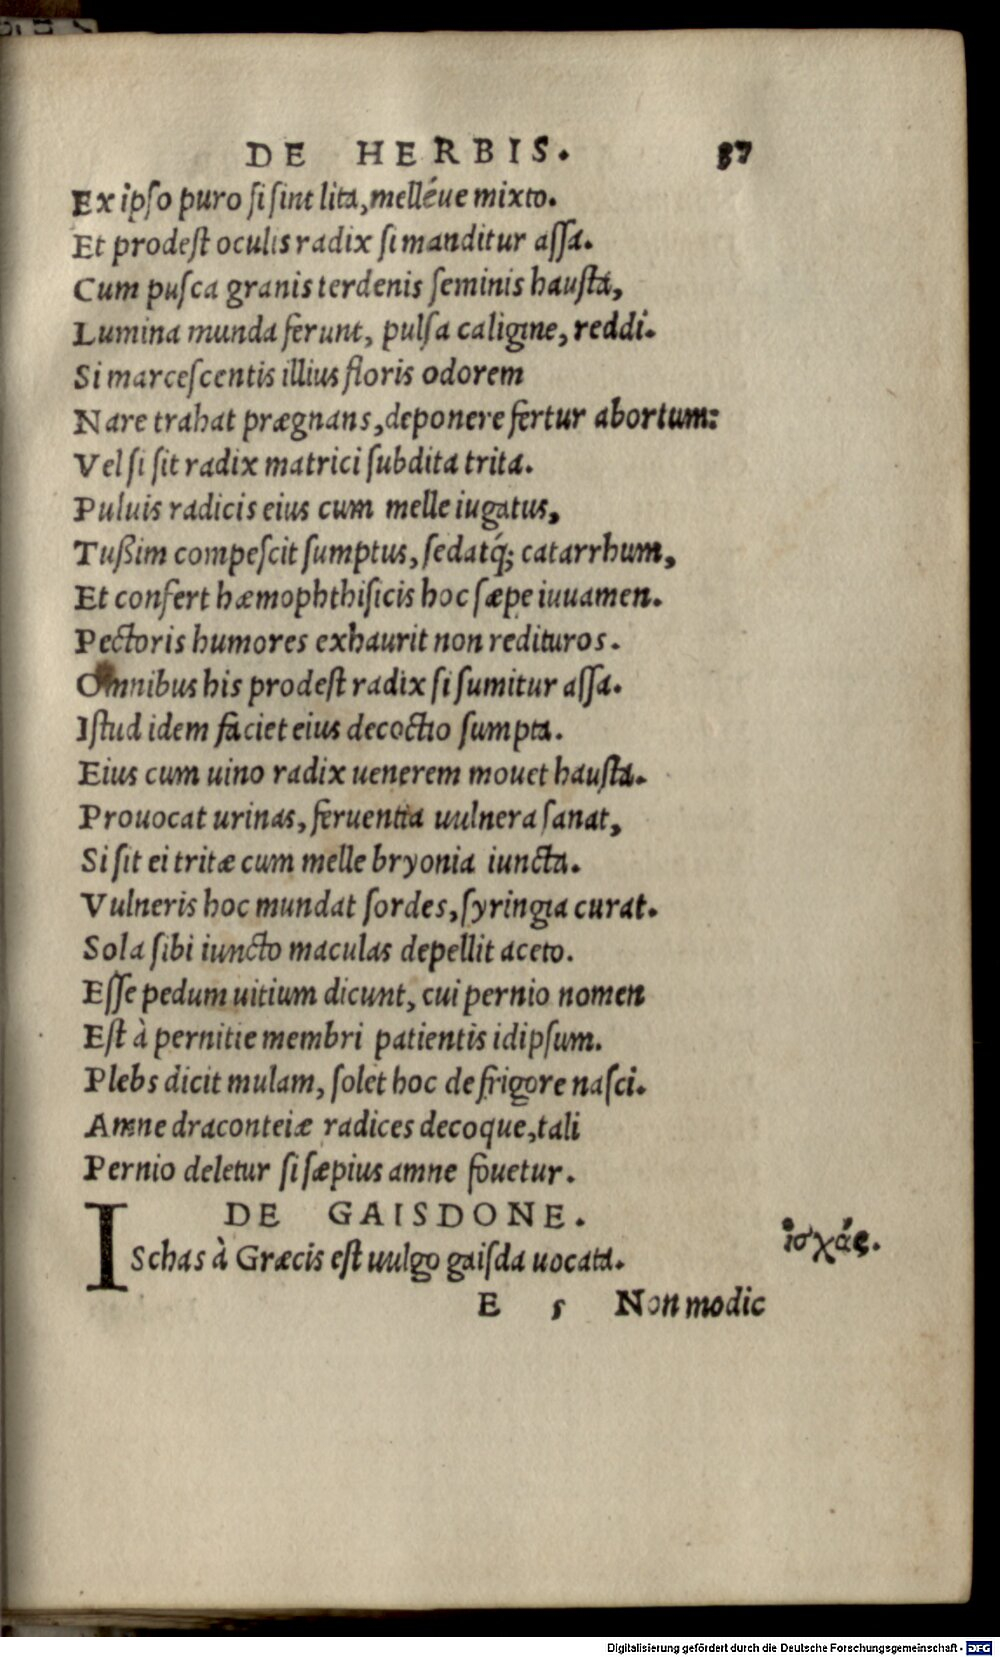 DE HERBIS. 87
Ex ipſo puro ſi ſint lita, melléue mixto.
Et prodeſt oculis radix ſi manditur aſſa.
Cum puſca granis terdenis ſeminis hauſta,
Lumina munda ferunt, pulſa caligine, reddi.
Si marceſcentis illius floris odorem
Nare trahat prægnans, deponere fertur abortum:
Vel ſi ſit radix matrici ſubdita trita.
Puluis radicis eius cum melle iugatus,
Tußim compeſcit ſumptus, ſedatq́; catarrhum,
Et confert hæmophthiſicis hoc ſæpe iuuamen.
Pectoris humores exhaurit non redituros.
Omnibus his prodeſt radix ſi ſumitur aſſa.
Iſtud idem faciet eius decoctio ſumpta.
Eius cum uino radix uenerem mouet hauſta.
Prouocat urinas, feruentia uulnera ſanat,
Si ſit ei tritæ cum melle bryonia iuncta.
Vulneris hoc mundat ſordes, ſyringia curat.
Sola ſibi iuncto maculas depellit aceto.
Eſſe pedum uitium dicunt, cui pernio nomen
Eſt à pernitie membri patientis idipſum.
Plebs dicit mulam, ſolet hoc de frigore naſci.
Amne draconteiæ radices decoque, tali
Pernio deletur ſi ſæpius amne fouetur.
DE GAISDONE.
ISchas à Græcis eſt uulgo gaiſda uocata.
ἰσχάς.
E 5 Non modic
Digitalisierung gefördert durch die Deutsche Forschungsgemeinschaft - DFG